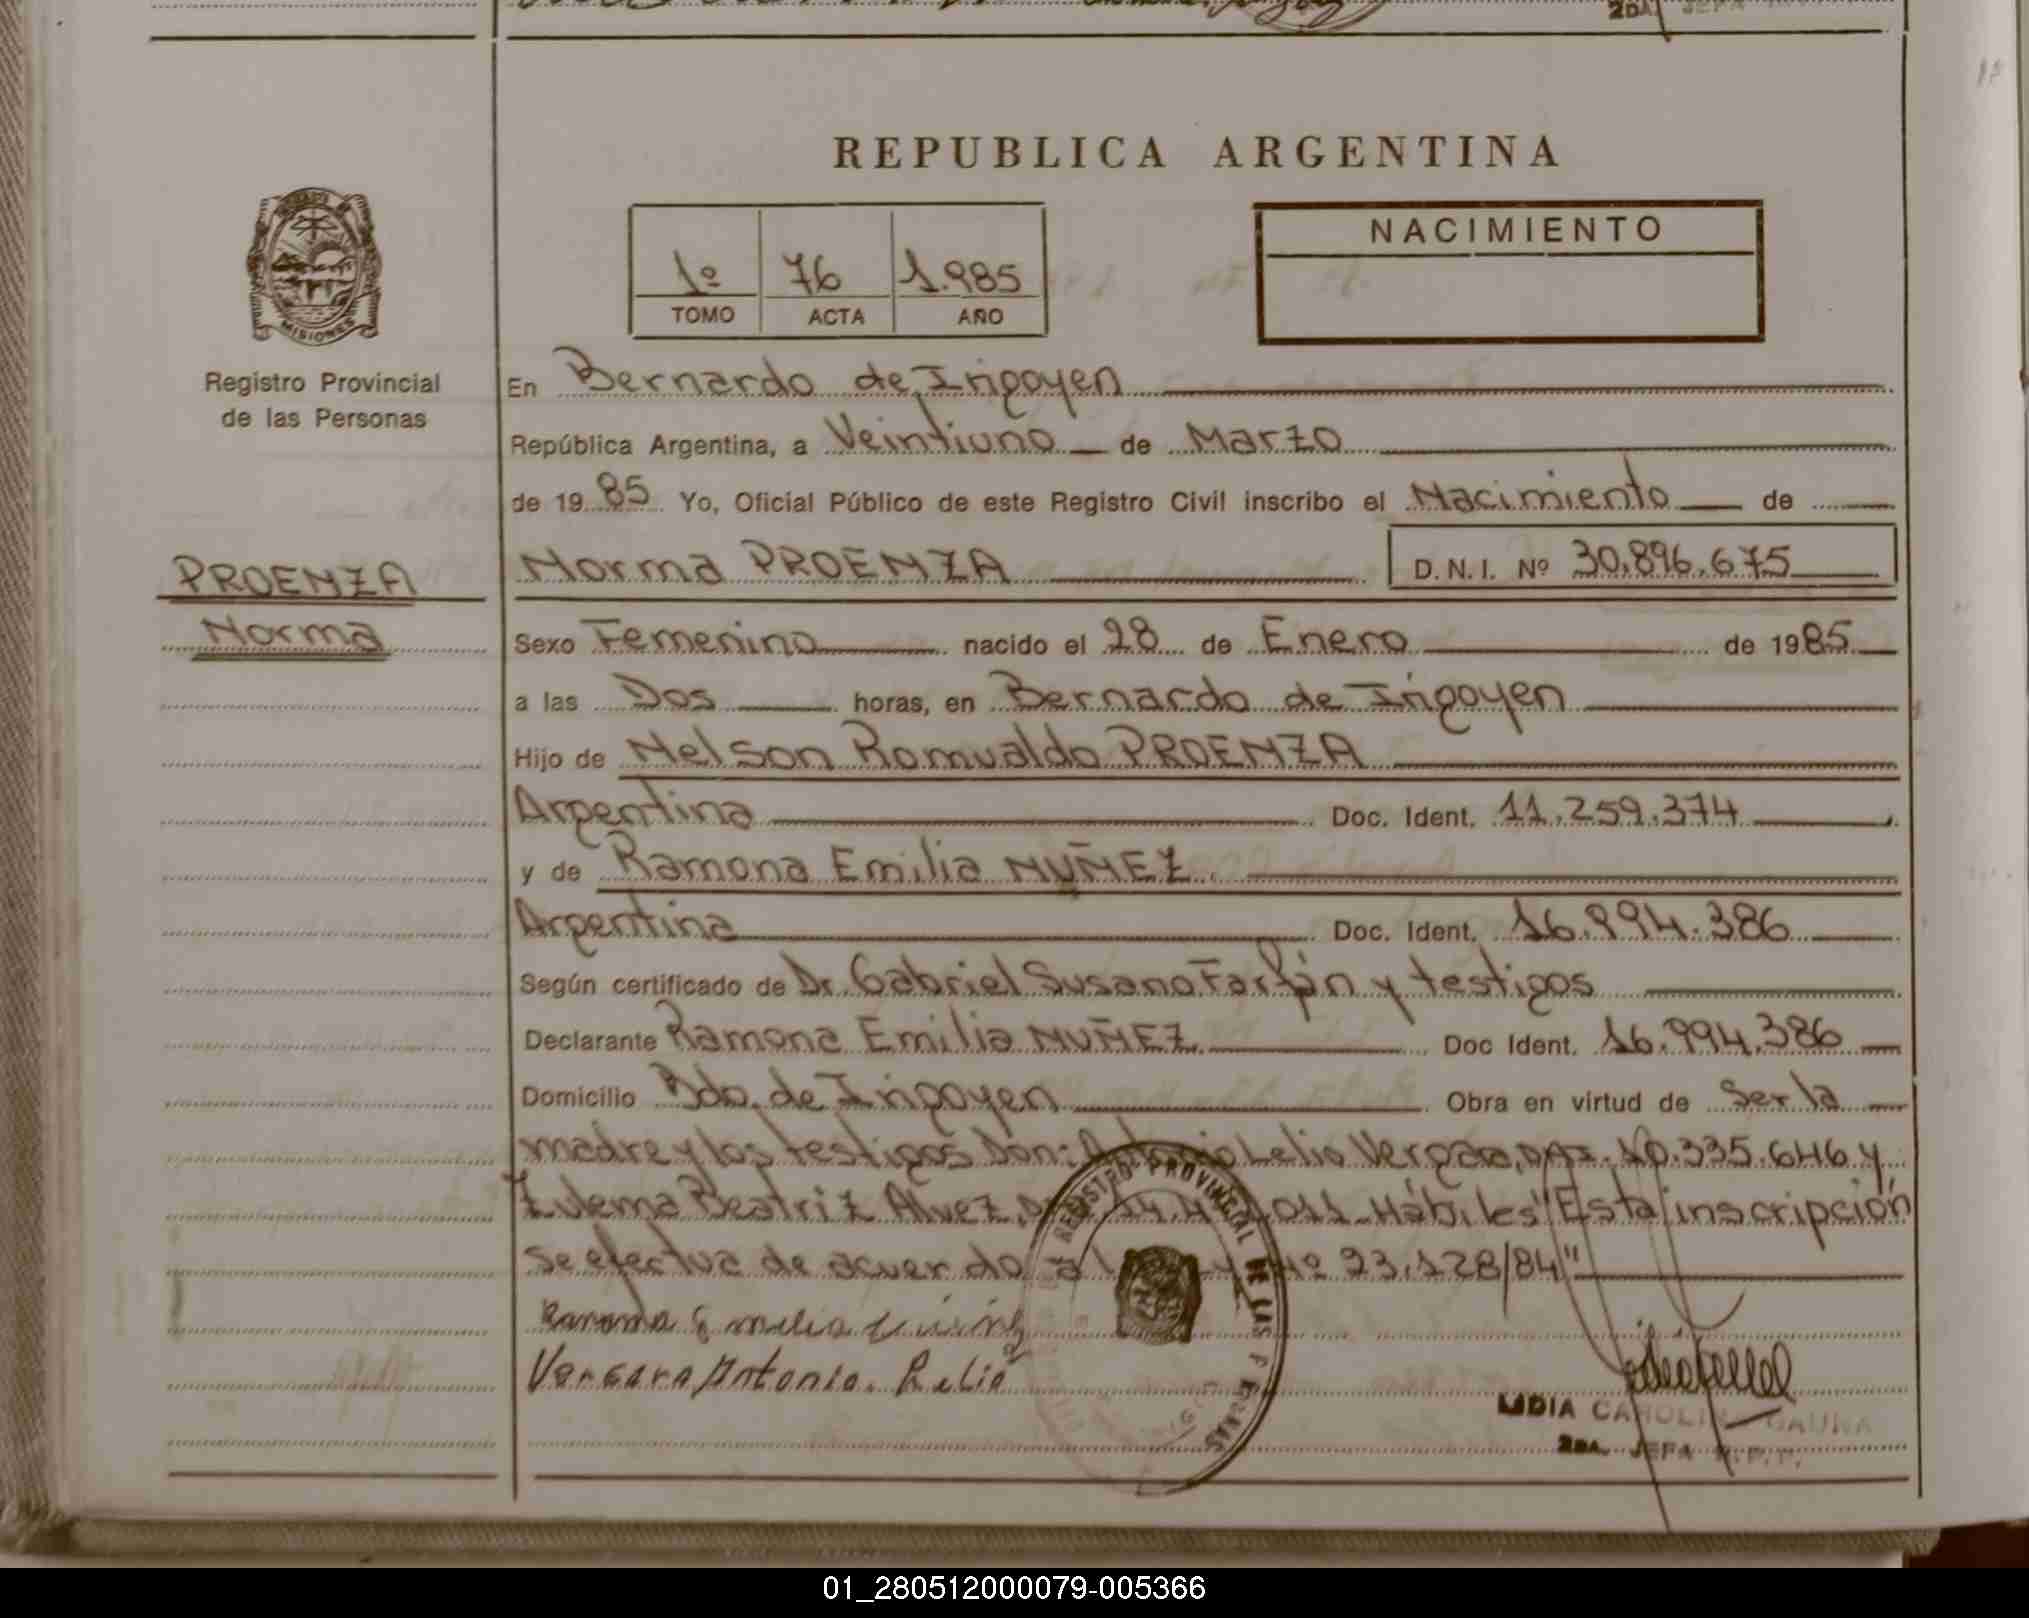 REPUBLICA ARGENTINA
MISIONES
Registro Provincial
de las Personas
1º 76 1.985
TOMO ACTA AÑO
NACIMIENTO
En Bernardo de Irigoyen
República Argentina, a Veintiuno de Marzo
de 1985 Yo, Oficial Público de este Registro Civil inscribo el Nacimiento de
PROENZA
Norma
Norma PROENZA D.N.I. Nº 30.896.675
Sexo Femenino nacido el 28 de Enero de 1985
a las Dos horas, en Bernardo de Irigoyen
Hijo de Nelson Romualdo PROENZA
Argentina Doc. Ident. 11.259.374
y de Ramona Emilia NUÑEZ
Argentina Doc. Ident. 16.994.386
Según certificado de Dr. Gabriel Susano Farfán y testigos
Declarante Ramona Emilia NUÑEZ Doc Ident. 16.994.386
Domicilio Bdo. de Irigoyen Obra en virtud de Ser la
madre y los testigos Don: Antonio Lelio Vergara, 10.335.646 y
Zulema Beatriz Alvez, 011_Hábiles "Esta inscripción
se efectua de acuerdo a Nº 23.128/84"
Ramona Emilia
Vergara Antonio. Relio
REGISTRO PROVINCIAL DE LAS PERSONAS
LIDIA CAROLINA GAUNA
2DA. JEFA R.P.P.
01_280512000079-005366